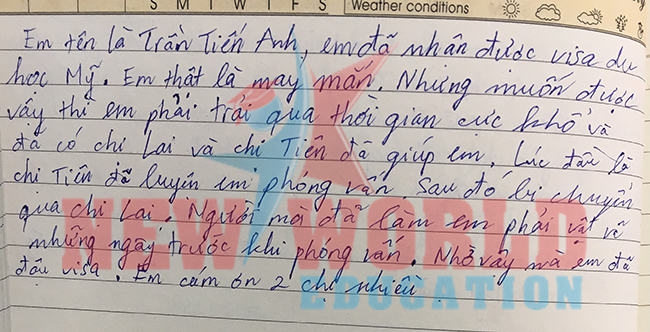 S M T W T F S Weather conditions
Em tên là Trần Tiến Anh, em đã nhân được visa du
học Mỹ. Em thật là may mắn. Nhưng muốn được
vậy thì em phải trải qua thời gian cực khổ và
đã có chi Lai và chi Tiên đã giúp em. Lúc đầu là
chi Tiên đã luyện em phỏng vấn sau đó bị chuyển
qua chi Lai. Người mà đã làm em phải vất vã
những ngày trước khi phỏng vấn. Nhờ vậy mà em đã
đậu visa. Em cám ơn 2 chị nhiều.
NEW WORLD
EDUCATION